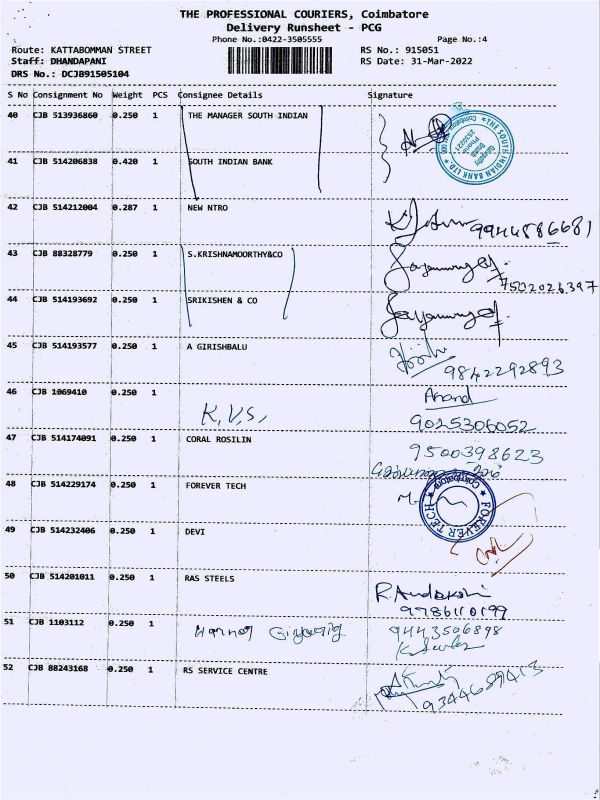 THE PROFESSIONAL COURIERS, Coimbatore
Delivery Runsheet - PCG
Phone No.:0422-3505555 Page No.:4
Route: KATTABOMMAN STREET RS No.: 915051
Staff: DHANDAPANI RS Date: 31-Mar-2022
DRS No.: DCJB91505104
S No Consignment No Weight PCS Consignee Details Signature
40 CJB 513936860 0.250 1 THE MANAGER SOUTH INDIAN
THE SOUTH INDIAN BANK LTD.
41 CJB 514206838 0.420 1 SOUTH INDIAN BANK
42 CJB 514212004 0.287 1 NEW NTRO 9944886681
43 CJB 88328779 0.250 1 S.KRISHNAMOORTHY&CO
7502026397
44 CJB 514193692 0.250 1 SRIKISHEN & CO
45 CJB 514193577 0.250 1 A GIRISHBALU
9842292893
46 CJB 1069410 0.250 1 Anand
K.V.S, 9025306052
47 CJB 514174091 0.250 1 CORAL ROSILIN 9500398623
48 CJB 514229174 0.250 1 FOREVER TECH
FOREVER TECH Coimbatore
49 CJB 514232406 0.250 1 DEVI
50 CJB 514201011 0.250 1 RAS STEELS
9786110199
51 CJB 1103112 0.250 1 9443506898
52 CJB 88243168 0.250 1 RS SERVICE CENTRE
9344689413